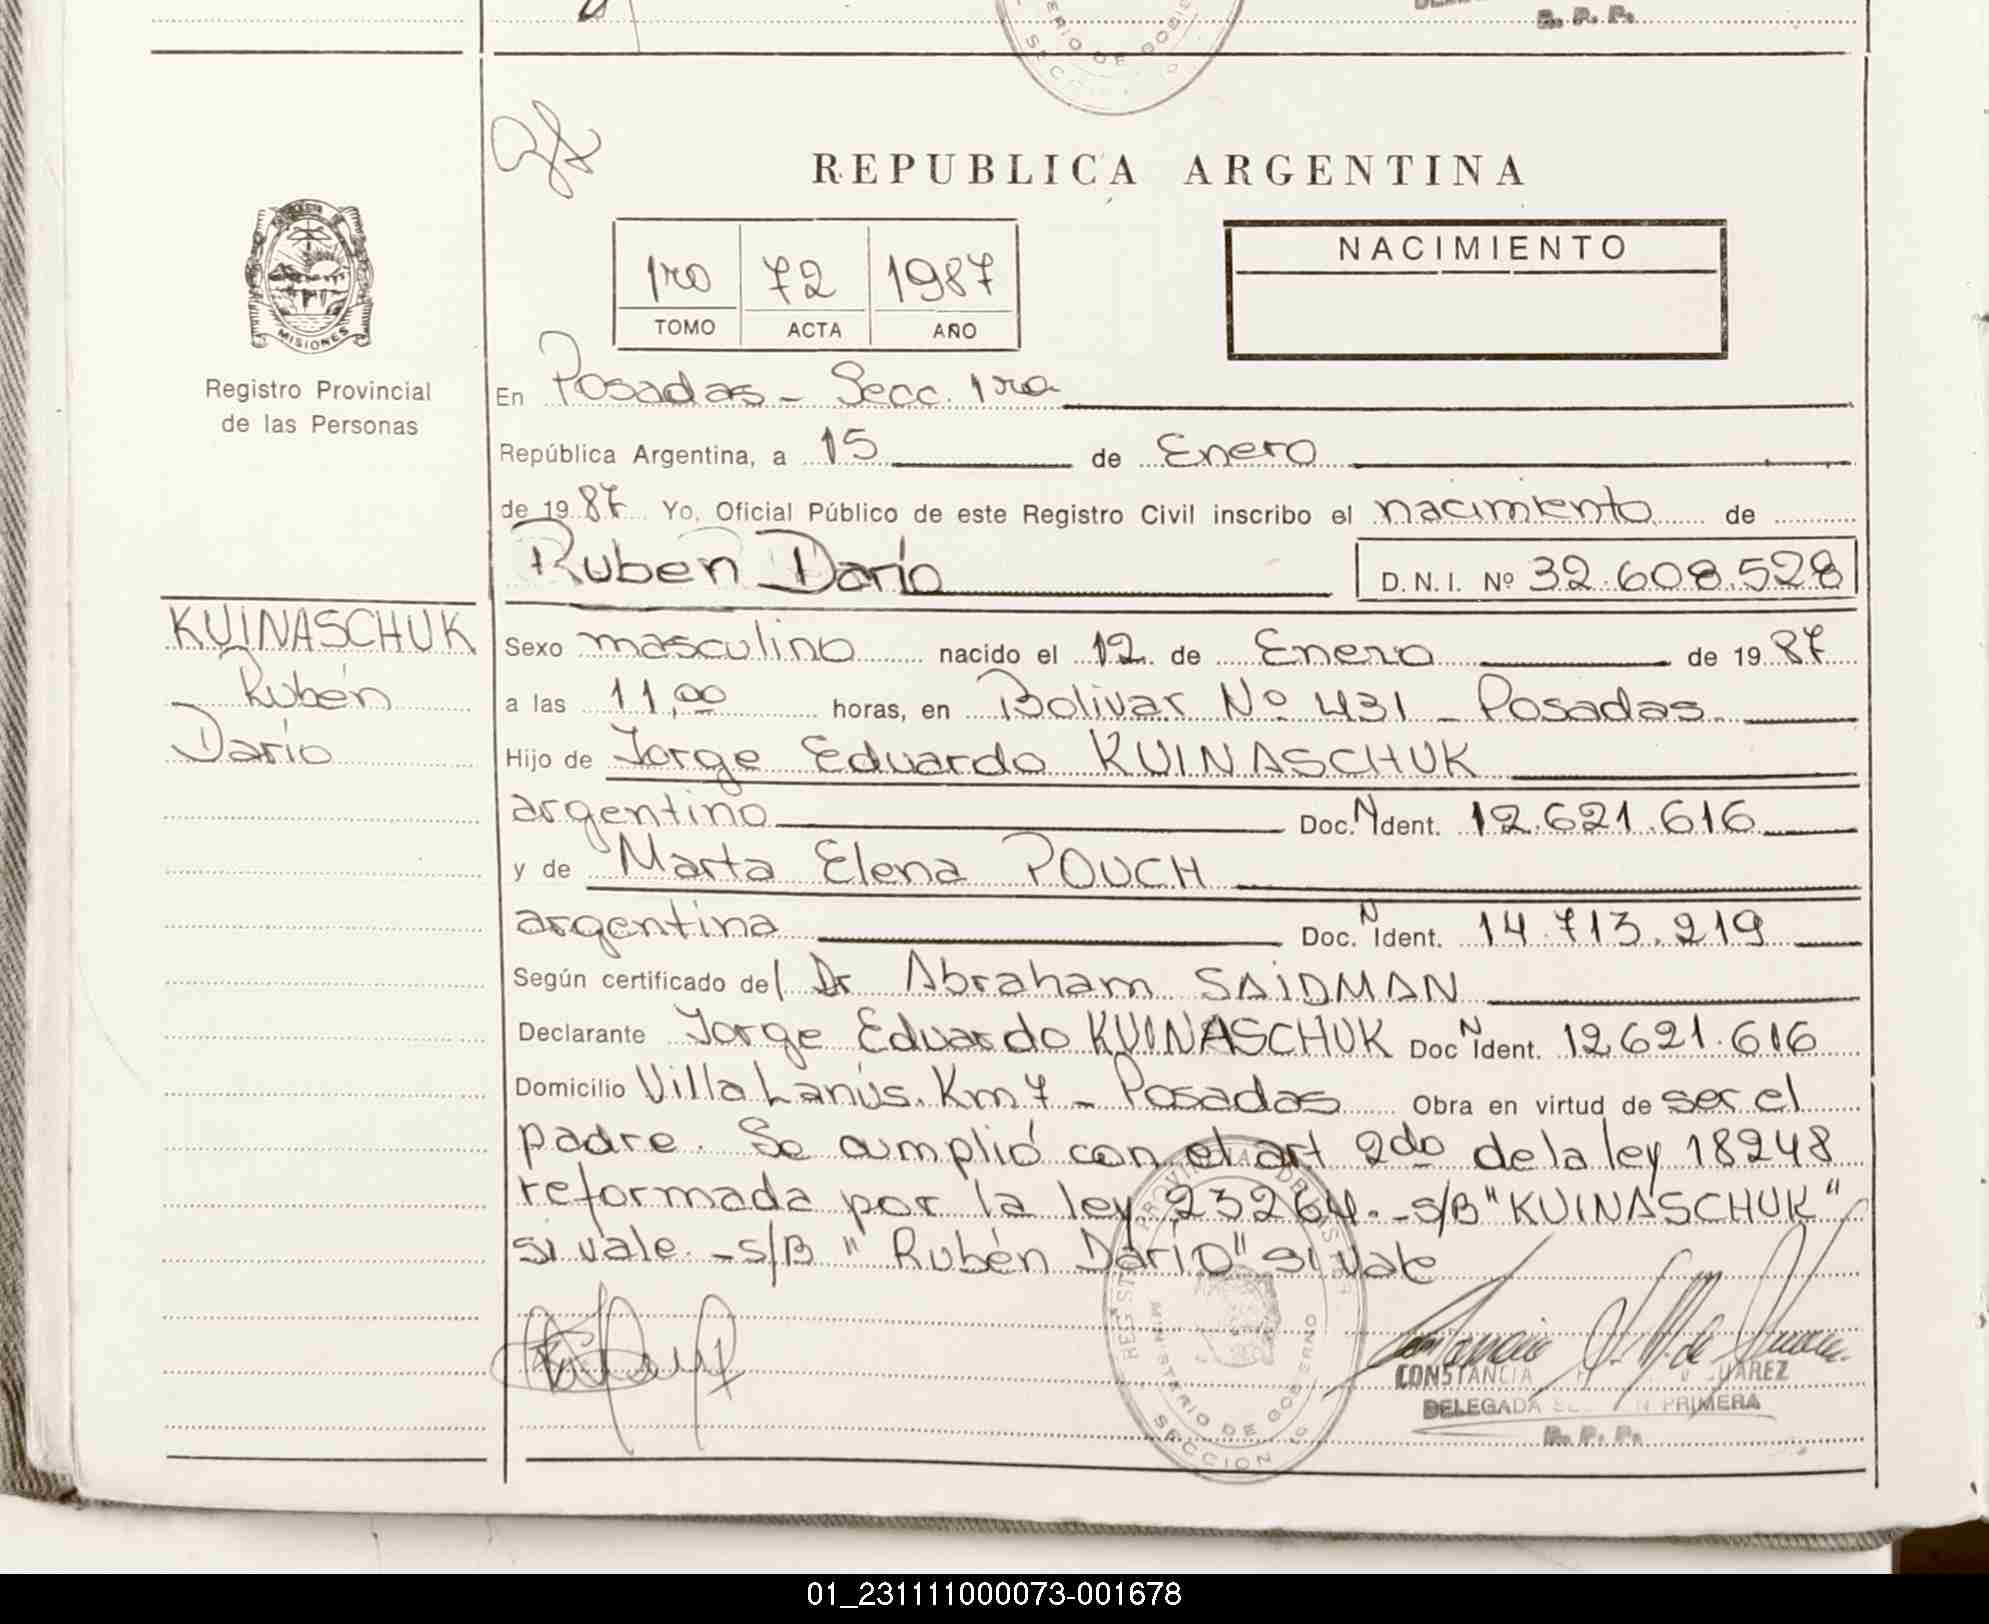 R. P. P.
REPUBLICA ARGENTINA
1ro 72 1987
TOMO ACTA AÑO
NACIMIENTO
MISIONES
Registro Provincial
de las Personas
En Posadas - Secc. 1ra
República Argentina, a 15 de Enero
de 1987 Yo, Oficial Público de este Registro Civil inscribo el nacimiento de
Ruben Dario D.N.I. Nº 32.608.528
KUINASCHUK
Rubén
Darío
Sexo masculino nacido el 12 de Enero de 1987
a las 11,00 horas, en Bolivar Nº 431 - Posadas
Hijo de Jorge Eduardo KUINASCHUK
argentino Doc. N Ident. 12.621.616
y de Marta Elena POUCH
argentina Doc. N Ident. 14.713.219
Según certificado del Dr Abraham SAIDMAN
Declarante Jorge Eduardo KUINASCHUK Doc N Ident. 12.621.616
Domicilio Villa Lanús. Km 7 - Posadas Obra en virtud de ser el
padre. Se cumplió con el art 2do de la ley 18248
reformada por la ley 23264. - S/B "KUINASCHUK"
si vale. - S/B "Rubén Darío" si vale
MINISTERIO DE GOBIERNO
SECCION 1ª
CONSTANCIA JUAREZ
DELEGADA PRIMERA
R. P. P.
01_231111000073-001678